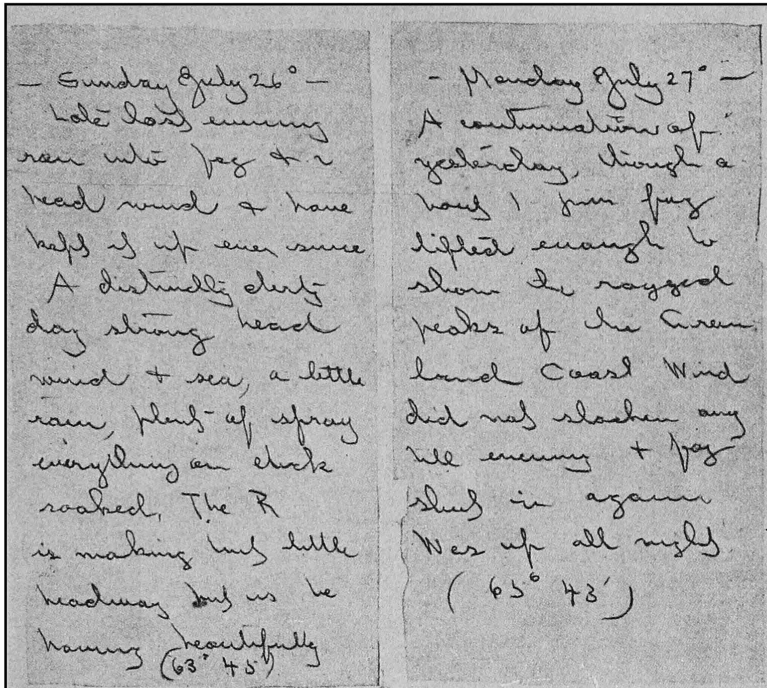 — Sunday July 26° —
Late last evening
ran into fog & a
head wind & have
kept it up ever since
A distinctly dirty
day strong head
wind & sea, a little
rain, plenty of spray
everything on deck
soaked, The R
is making but little
headway but is be
having beautifully
(63° 45')
— Monday July 27° —
A continuation of
yesterday, though a
bout 1 pm fog
lifted enough to
show the ragged
peaks of the Green
land Coast Wind
did not slacken any
till evening & fog
shut in again
Was up all night
(65° 43')